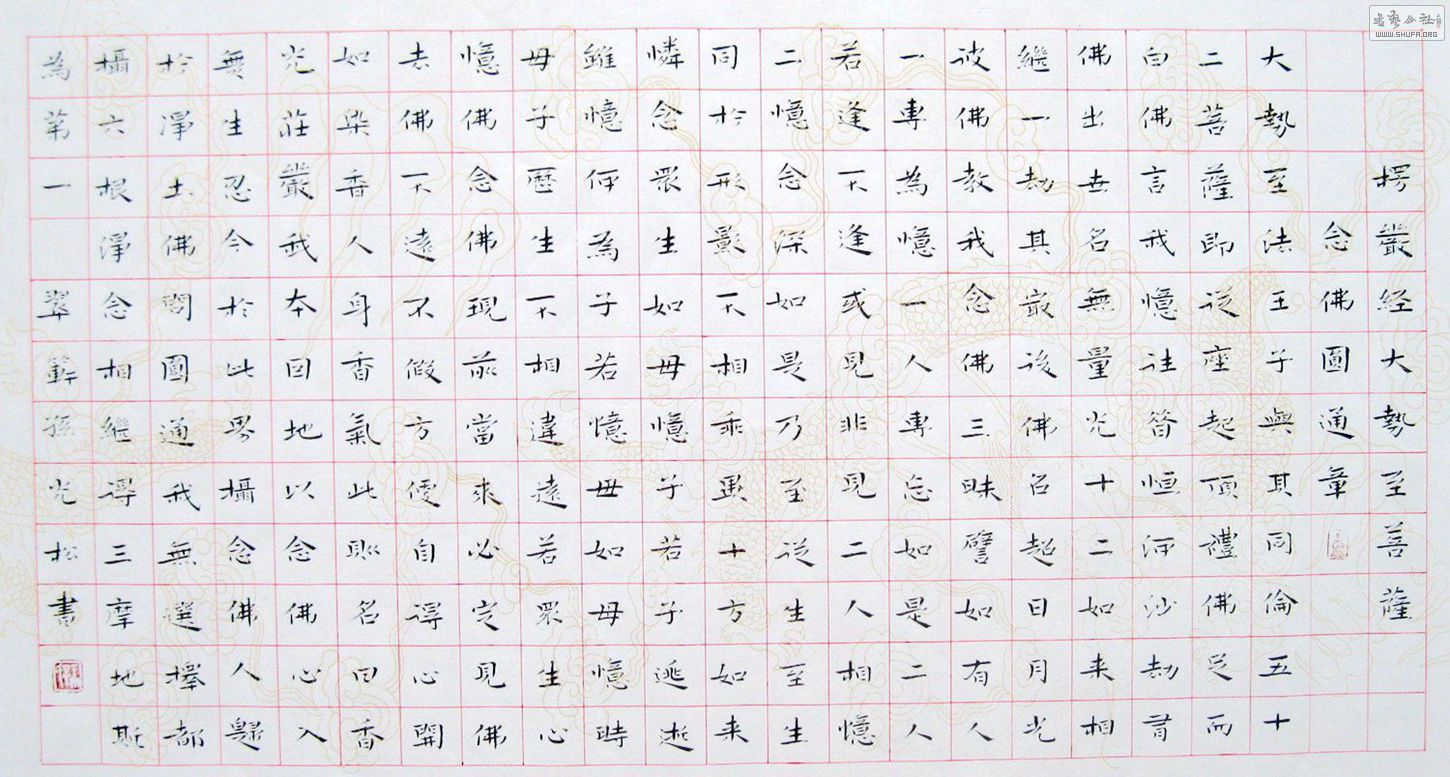 楞嚴经大勢至菩薩
念佛圓通章
大勢至法王子與其同倫五十
二菩薩即從座起頂禮佛足而
白佛言我憶往昔恒河沙劫有
佛出世名無量光十二如来相
繼一劫其最後佛名超日月光
彼佛教我念佛三昧譬如有人
一專為憶一人專忘如是二人
若逢不逢或見非見二人相憶
二憶念深如是乃至從生至生
同於形影不相乖異十方如来
憐念眾生如母憶子若子逃逝
雖憶何為子若憶母如母憶時
母子歷生不相違遠若眾生心
憶佛念佛現前當來必定見佛
去佛不遠不假方便自得心開
如染香人身香氣此則名曰香
光莊嚴我本因地以念佛心入
無生忍今於此界攝念佛人歸
於淨土佛問圓通我無選擇都
攝六根淨念相繼得三摩地斯
為第一 翠孫光松書
WWW.SHUFA.ORG